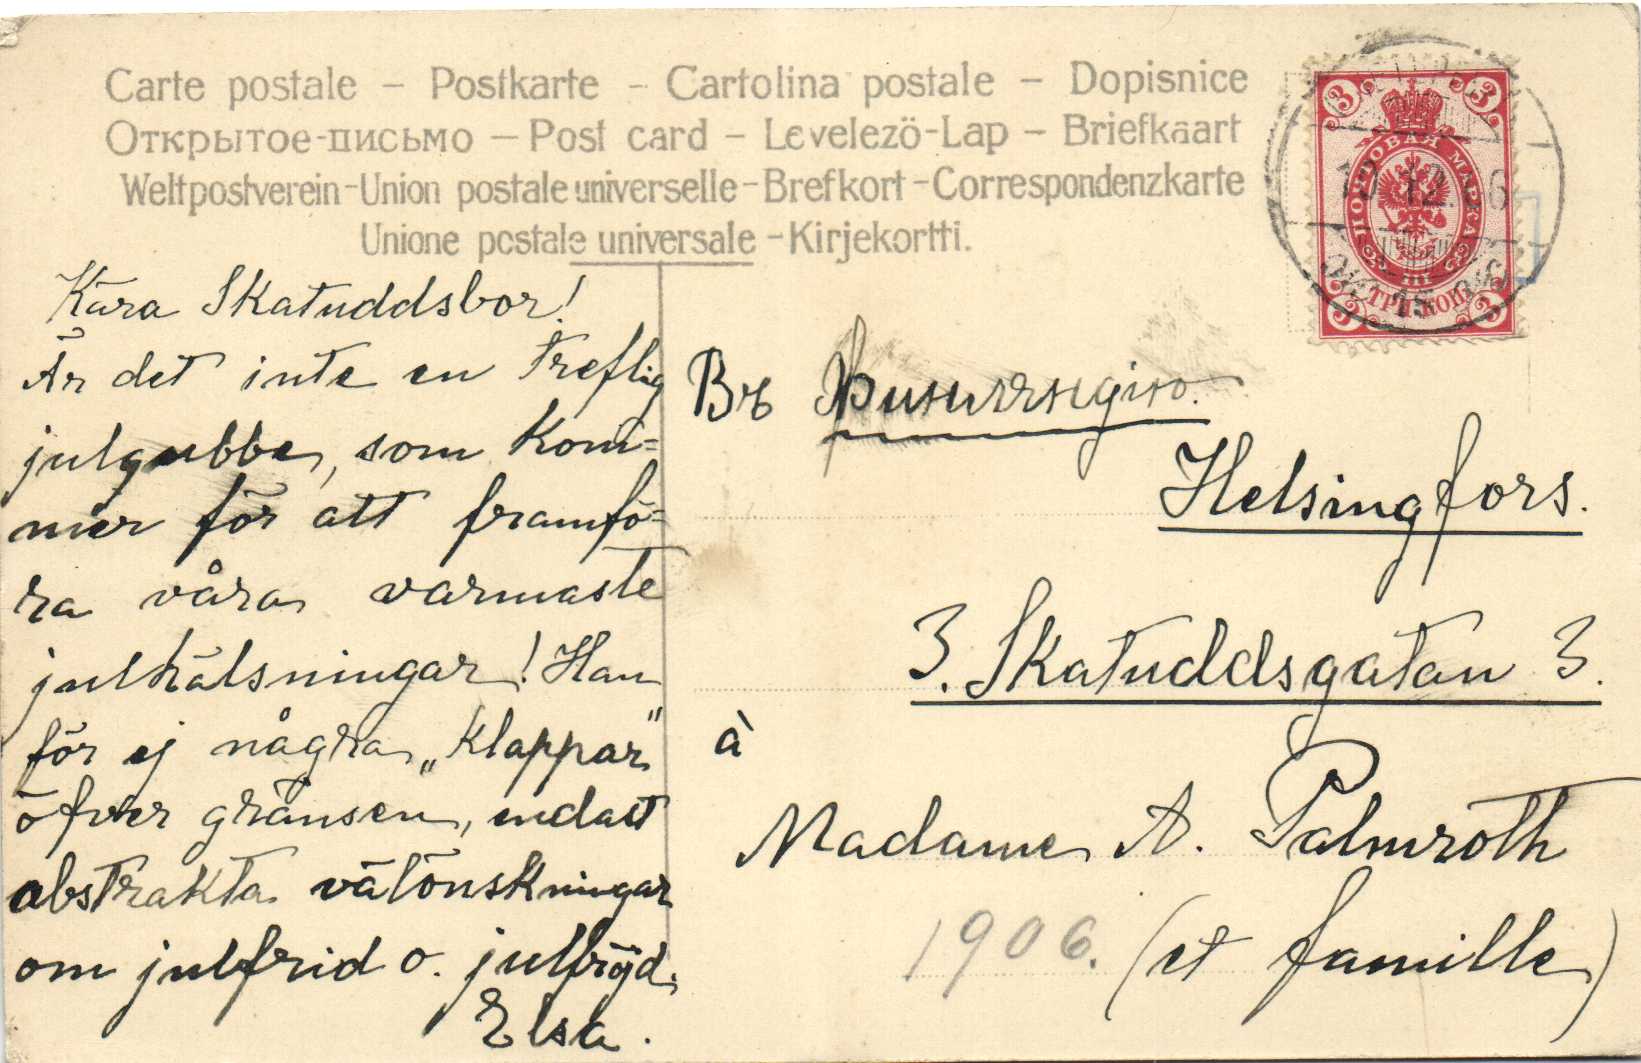 Carte postale – Postkarte – Cartolina postale – Dopisnice
Открытое-письмо – Post card – Levelezö-Lap – Briefkaart
Weltpostverein-Union postale universelle-Brefkort-Correspondenzkarte
Unione postale universale-Kirjekortti.
3 3
ПОЧТОВАЯ МАРКА
ТРИ КОП
3 3
Kära Skatuddsbor!
Är det inte en treflig
julgubbe, som kom=
mer för att framfö=
ra våra varmaste
julhälsningar! Han
för ej några „klappar"
öfver gränsen, endast
abstrakta välönskningar
om julfrid o. julfröjd.
Elsa.
Въ Финляндiю.
Helsingfors.
3. Skatuddsgatan 3.
à
Madame A. Palmroth
(et famille)
1906.